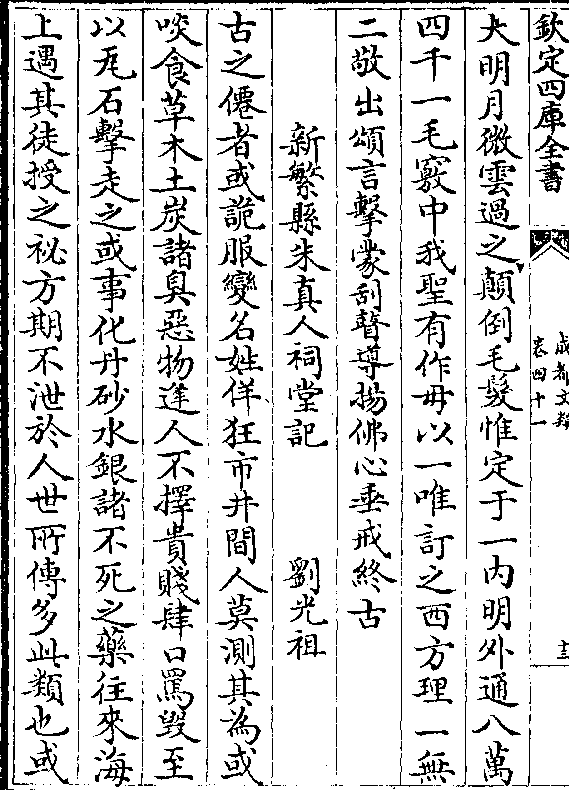 欽定四庫全書
成都文類
卷四十一
十三
大明月微雲過之顛倒毛髮惟定于一内明外通八萬
四千一毛竅中我聖有作毋以一唯訂之西方理一無
二敬出頌言擊蒙刮瞽導揚佛心垂戒終古
新繁縣朱真人祠堂記 劉光祖
古之僊者或詭服變名姓佯狂市井間人莫測其為或
啖食草木土炭諸臭惡物逢人不擇貴賤肆口罵毁至
以瓦石擊走之或事化丹砂水銀諸不死之藥往來海
上遇其徒授之袐方期不泄於人世所傳多此類也或